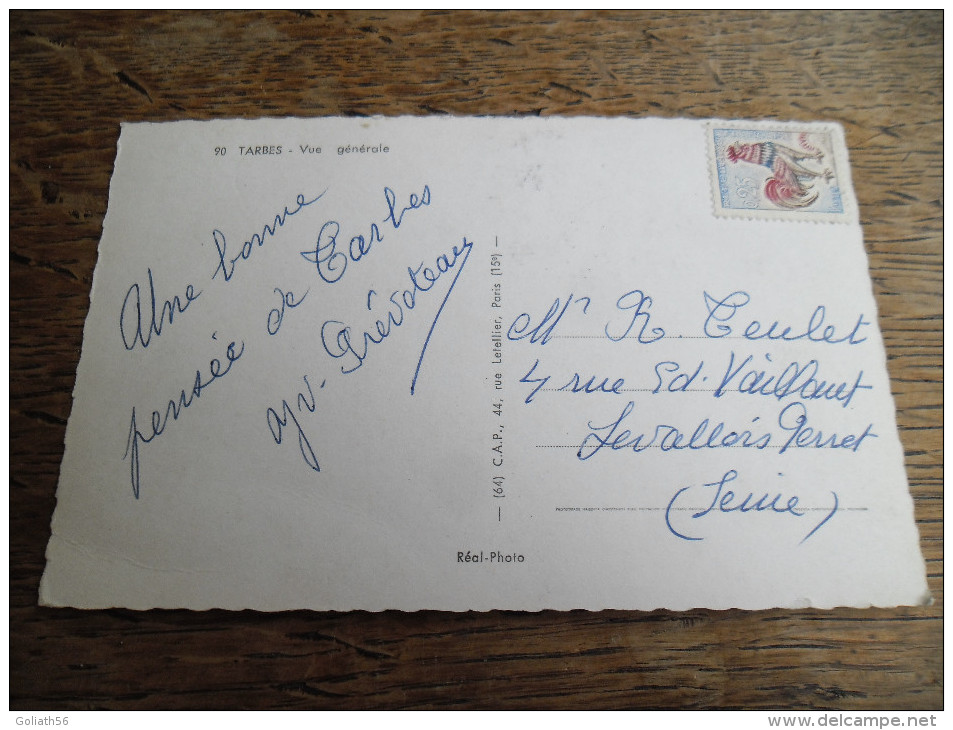 90 TARBES - Vue générale
Une bonne
pensée de Tarbes
yv. Prévoteau
— (64) C.A.P., 44, rue Letellier, Paris (15e) —
Réal-Photo
0,25
Mr R. Teulet
4 rue Ed. Vaillant
Levallois Perret
(Seine)
Goliath56
www.delcampe.net